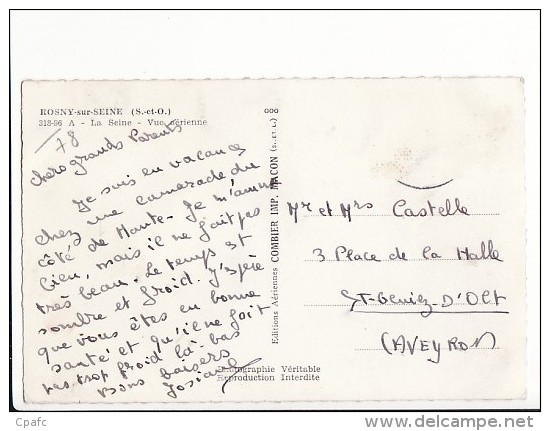 ROSNY-sur-SEINE (S.-et-O.)
318-96 A - La Seine - Vue aérienne
78
Chers grands Parents
Je suis en vacances
chez une camarade du
côté de Mante. Je m'amuse
bien, mais il ne fait pas
très beau. Le temps est
sombre et froid. J'espère
que vous êtes en bonne
santé et qu'il ne fait
pas trop froid là-bas
Bons baisers
Josiane
Editions Aériennes COMBIER IMP. MACON (S.-et-L.)
Mr et Mrs Castelle
3 Place de la Halle
St-Geniez-D'Olt
(AVEYRON)
Photographie Véritable
Reproduction Interdite
Cpafc
www.delcampe.net